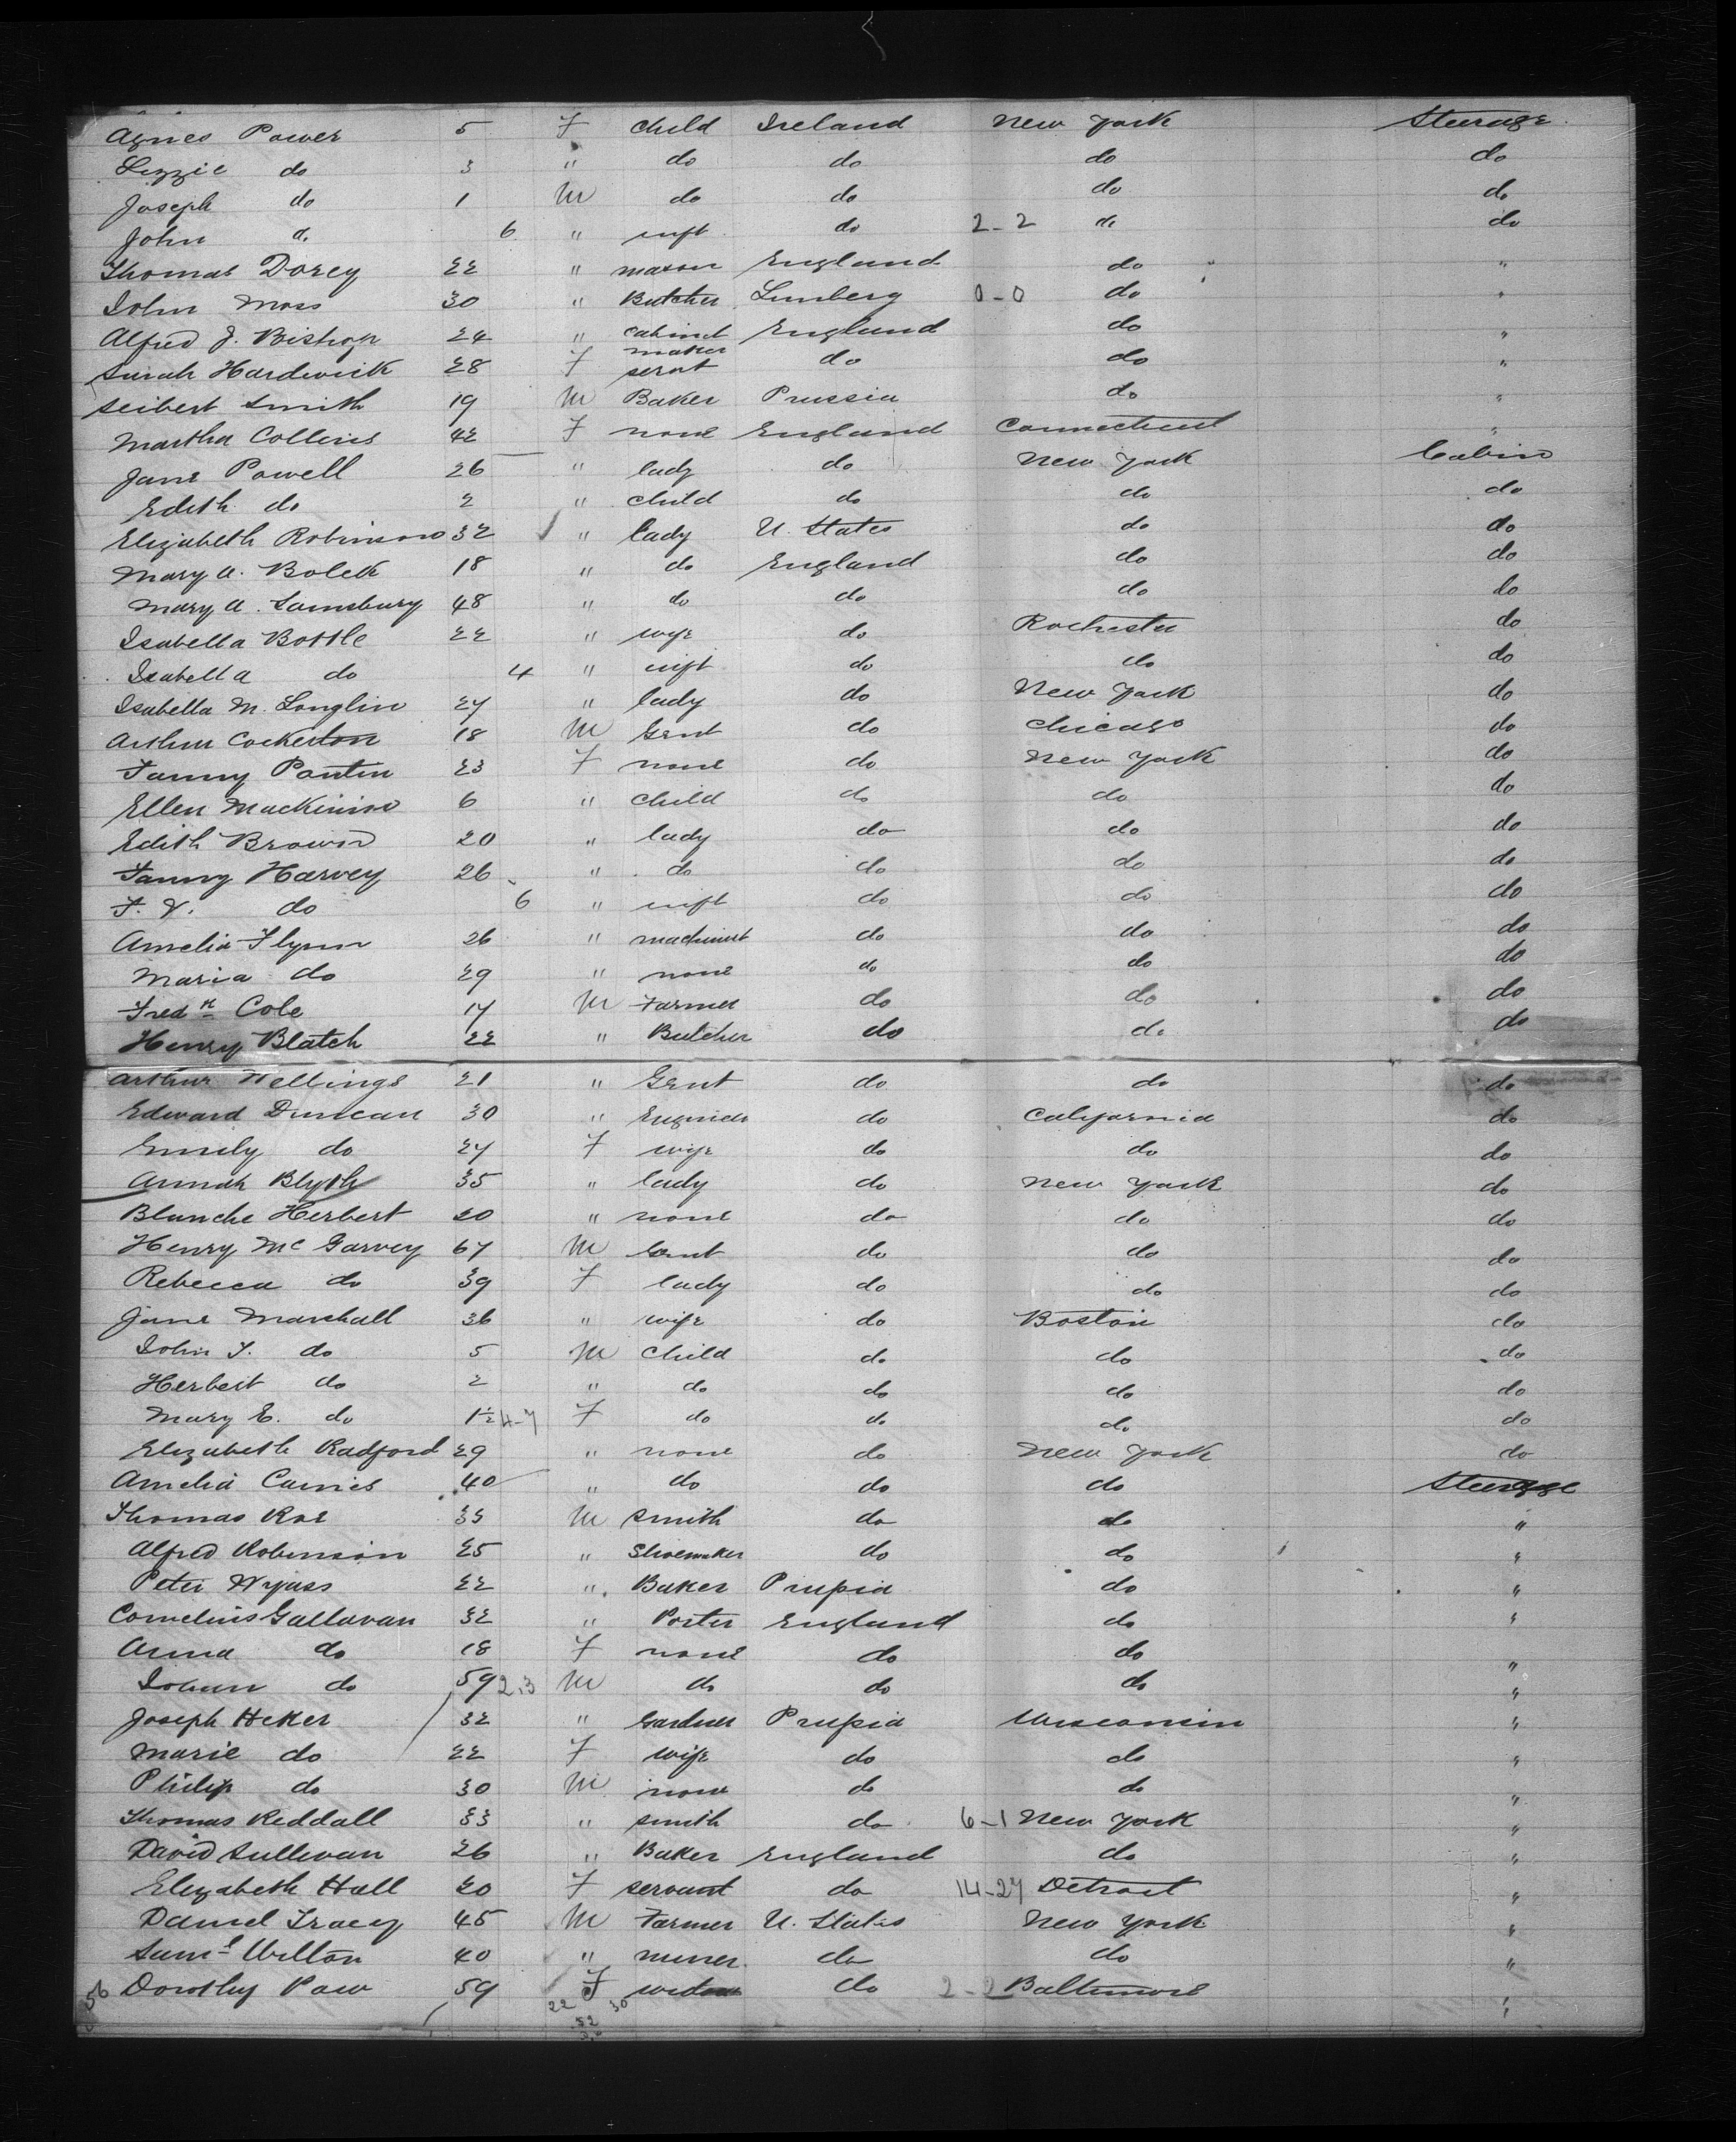 Agnes Power 5 F child Ireland New York Steerage
Lizzie do 3 " do do do do
Joseph do 1 M do do do do
John d. 6 " inft do 2-2 do do
Thomas Dorey 22 " mason England do "
John Moss 30 " Butcher 0-0 do "
Alfred J. Bishop 24 " cabinet maker England do "
Sarah Hardwick 28 F servt do do "
Seibert Smith 19 M Baker Prussia do "
Martha Collins 42 F none England Connecticut "
Jane Powell 26 " lady do New York Cabin
Edith do 2 " child do do do
Elizabeth Robinson 32 " lady U. States do do
Mary A. Bolck 18 " do England do do
Mary A. Sainsbury 48 " do do do do
Isabella Bottle 22 " wife do Rochester do
Isabella do 4 " inft do do do
Isabella M. Longlin 27 " lady do New York do
Arthur Cockerton 18 M Gent do Chicago do
Fanny Pontin 23 F none do New York do
Ellen Mackinno 6 " child do do do
Edith Brown 20 " lady do do do
Fanny Harvey 26 " do do do do
F. V. do 6 " inft do do do
Amelia Flynn 26 " machinist do do do
Maria do 29 " none do do do
Fredk Cole 17 M Farmer do do do
Henry Blatch 22 " Butcher do do do
Arthur Wellings 21 " Gent do do do
Edward Duncan 30 " Engineer do California do
Emily do 27 F wife do do do
Annah Blyth 35 " lady do New York do
Blanche Herbert 20 " none do do do
Henry Mc Garvey 67 M Gent do do do
Rebecca do 39 F lady do do do
Jane Marshall 36 " wife do Boston do
John T. do 5 M Child do do do
Herbert do 2 " do do do do
Mary E. do 1½ 4-7 F do do do do
Elizabeth Radford 29 " none do New York do
Amelia Cairnes 40 " do do do Steerage
Thomas Roe 35 M Smith do do "
Alfred Robinson 25 " Shoemaker do do "
Peter Wyass 22 " Baker Prussia do "
Cornelius Gallavan 32 " Porter England do "
Anna do 18 F none do do "
Johan do 59 2.3 M do do do "
Joseph Heker 32 " Gardner Prussia Wisconsin "
Marie do 22 F wife do do "
Philip do 30 M none do do "
Thomas Reddall 33 " smith do 6-1 New York "
David Sullivan 26 " Baker England do "
Elizabeth Hall 20 F servant do 14-27 Detroit "
Daniel Tracey 45 M Farmer U. States New York "
Saml Wilton 40 " miner do do "
56 Dorothy Paw 59 F widow do 2-2 Baltimore "
22 30
52